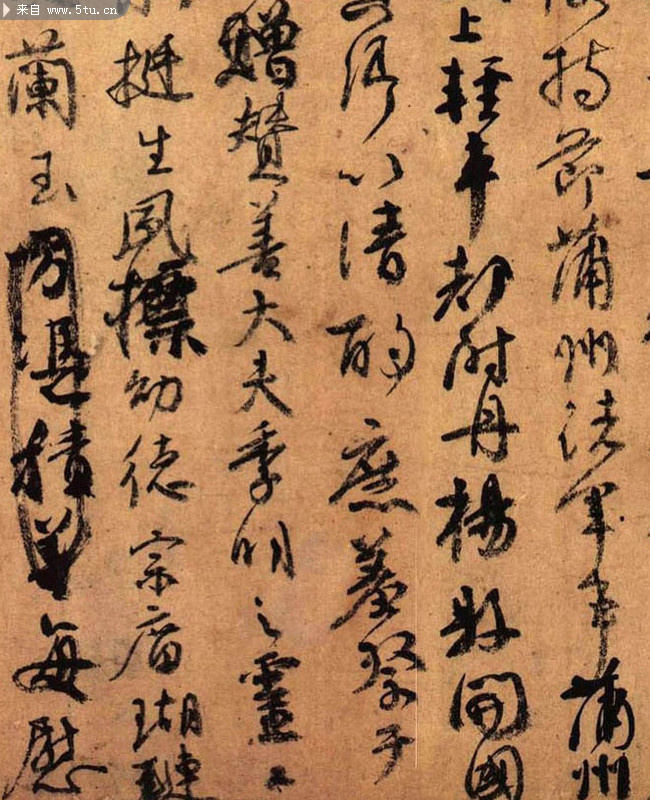 来自 www.5tu.cn
持節蒲州諸軍事蒲州
上輕車都尉丹楊縣開國
卿以清酌庶羞祭于
贈贊善大夫季明之靈曰
挺生夙標幼德宗廟瑚璉
蘭玉方憑積善每慰